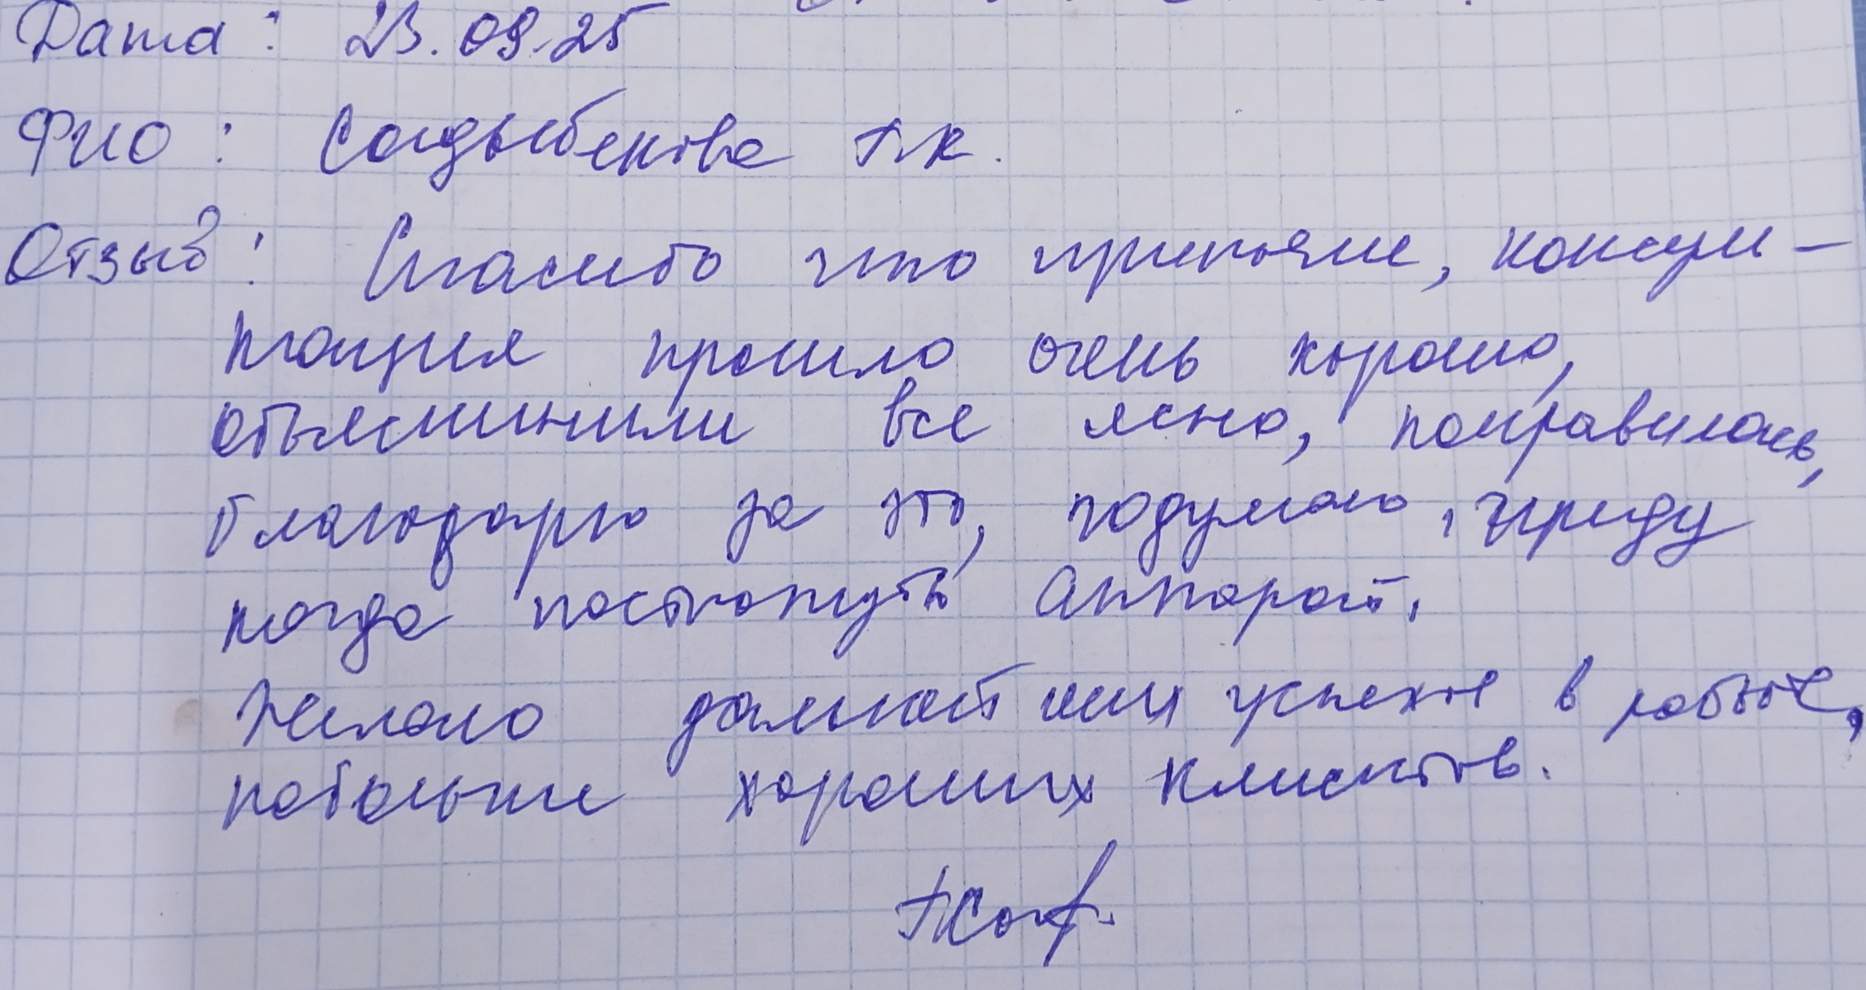 Дата: 23.09.25
ФИО: Садыбекова А.К.
Отзыв: Спасибо что приняли, консуль-
тация прошло очень хорошо,
объяснили все ясно, понравилась,
благодарю за это, подумаю,
когда аппарат.
Желаю дальнейших успехов в работе,
побольше хороших клиентов.